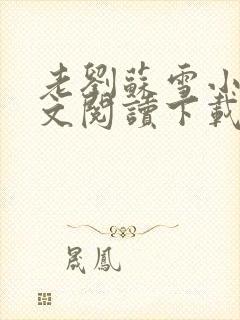 老劉蘇雪小
文閱讀下載
晟鳳